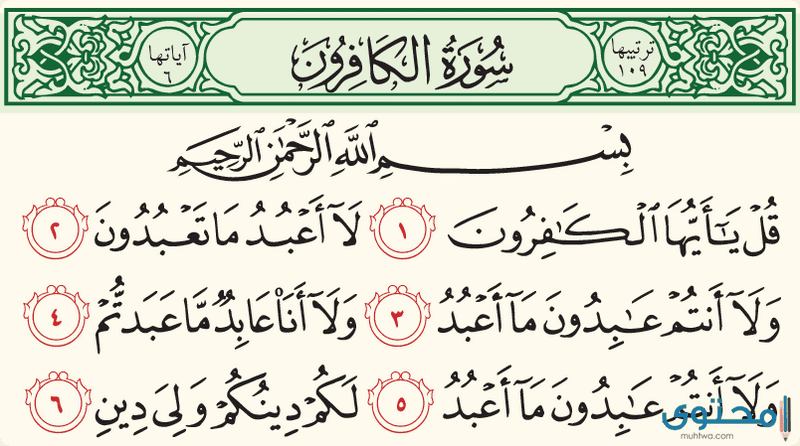 ترتيبها ١٠٩ سُورَةُ الكَافِرُونَ آياتها ٦
بِسْمِ ٱللَّهِ ٱلرَّحْمَٰنِ ٱلرَّحِيمِ
قُلْ يَٰٓأَيُّهَا ٱلْكَٰفِرُونَ ١ لَآ أَعْبُدُ مَا تَعْبُدُونَ ٢
وَلَآ أَنتُمْ عَٰبِدُونَ مَآ أَعْبُدُ ٣ وَلَآ أَنَا۠ عَابِدٌ مَّا عَبَدتُّمْ ٤
وَلَآ أَنتُمْ عَٰبِدُونَ مَآ أَعْبُدُ ٥ لَكُمْ دِينُكُمْ وَلِىَ دِينِ ٦
محتوى
muhtwa.com